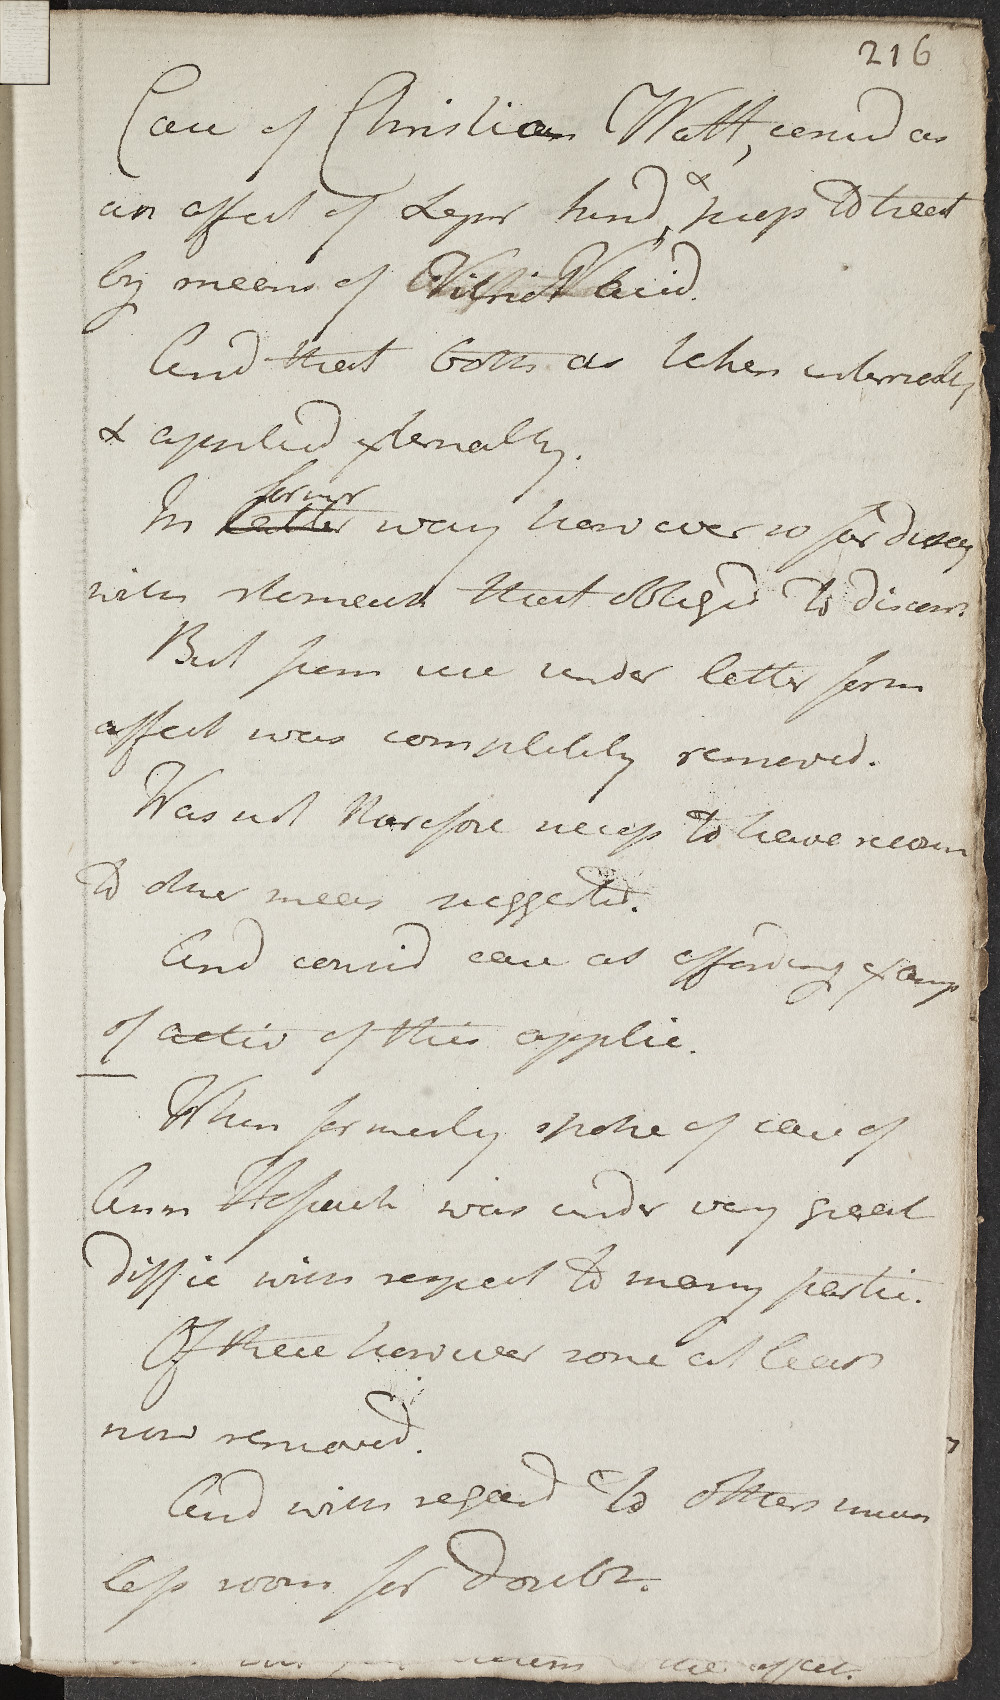 216
Case of Christian Watt, consid as
an affect of Leprs kind, & props to treat
by means of Vitriol acid.
And that both as taken internally
& applied externally.
In latter former way however so far disag
with stomach that obliged to discon.
But from use under latter form
affect was completely removed.
Was not therefore necess to have recour
to other meas suggested.
And consid case as affording examp
of activ of this applic.
When formerly spoke of case of
Ann was under very great
diffic with respect to many partic.
Of these however some at least
now removed.
And with regard to others much
less room for doubt.
affect.